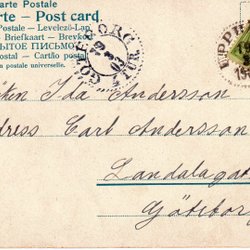 Carte Postale
rte – Post card.
Postale – Levelező-Lap
Briefkaart – Brevkort
ЫТОЕ ПИСЬМО
postal – Cartão postal
n postale universelle.
GÖTEBORG
19
3
03
öken Ida Andersson
dress Carl Andersson
Landalagat
Göteborg